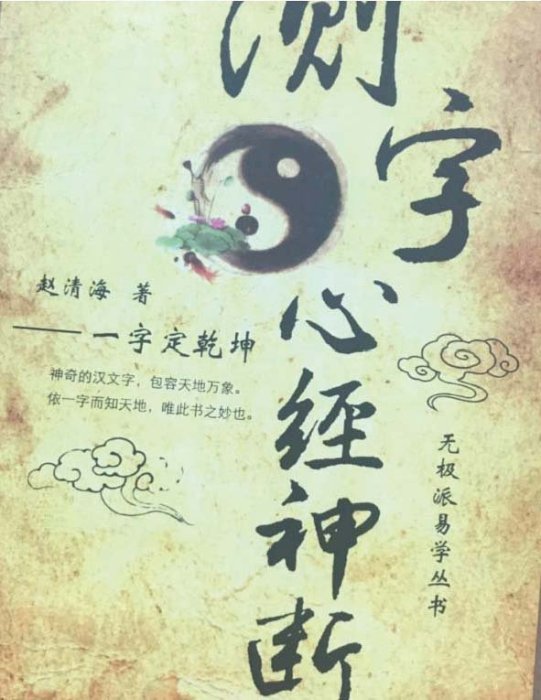 测字心经神断
赵清海 著
—— 一字定乾坤
神奇的汉文字，包容天地万象。
依一字而知天地，唯此书之妙也。
无极派易学丛书